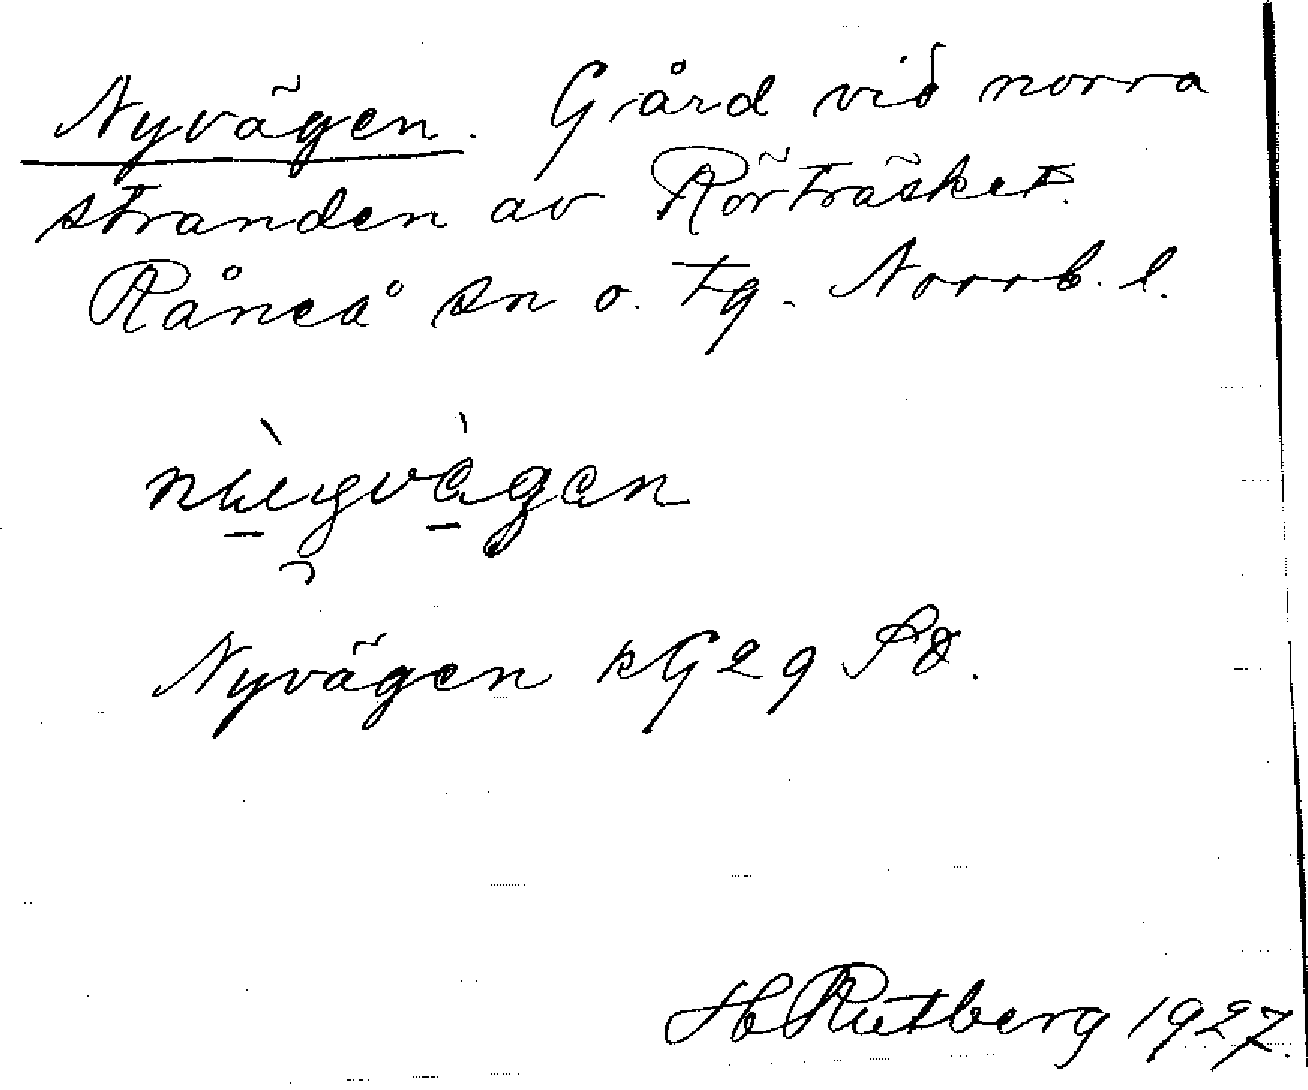 Nyvägen. Gård vid norra
stranden av Rörträsket.
Råneå sn o. tg. Norrb. l.
Nyvägen kG29 Sö.
H Rutberg 1927.